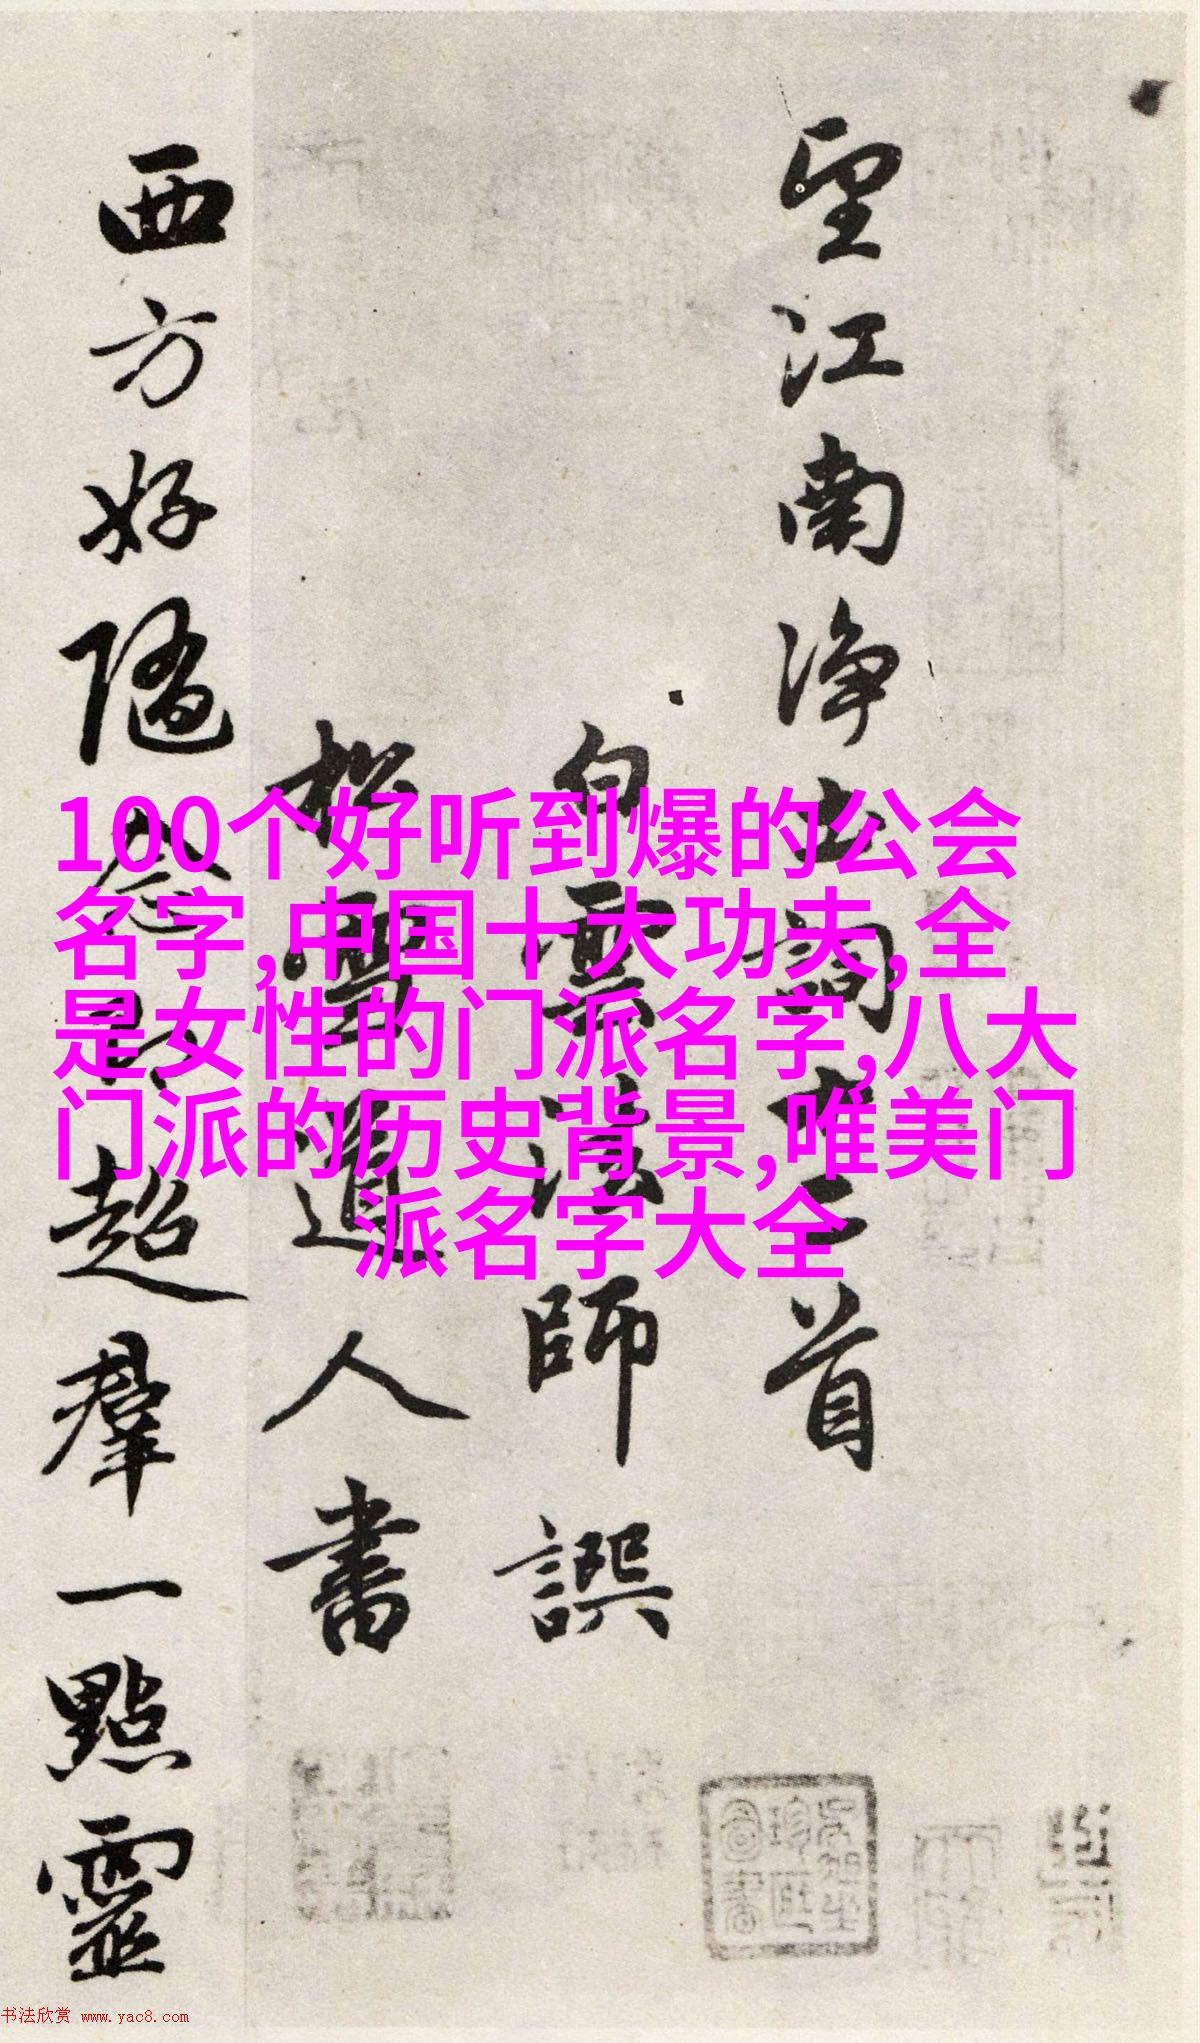 望江南净土詞十二首
白雲法師譔
松雪道人書
西方好隨念即超羣一點靈
100个好听到爆的公会
名字,中国十大功夫,全
是女性的门派名字,八大
门派的历史背景,唯美门
派名字大全
书法欣赏 www.yac8.com